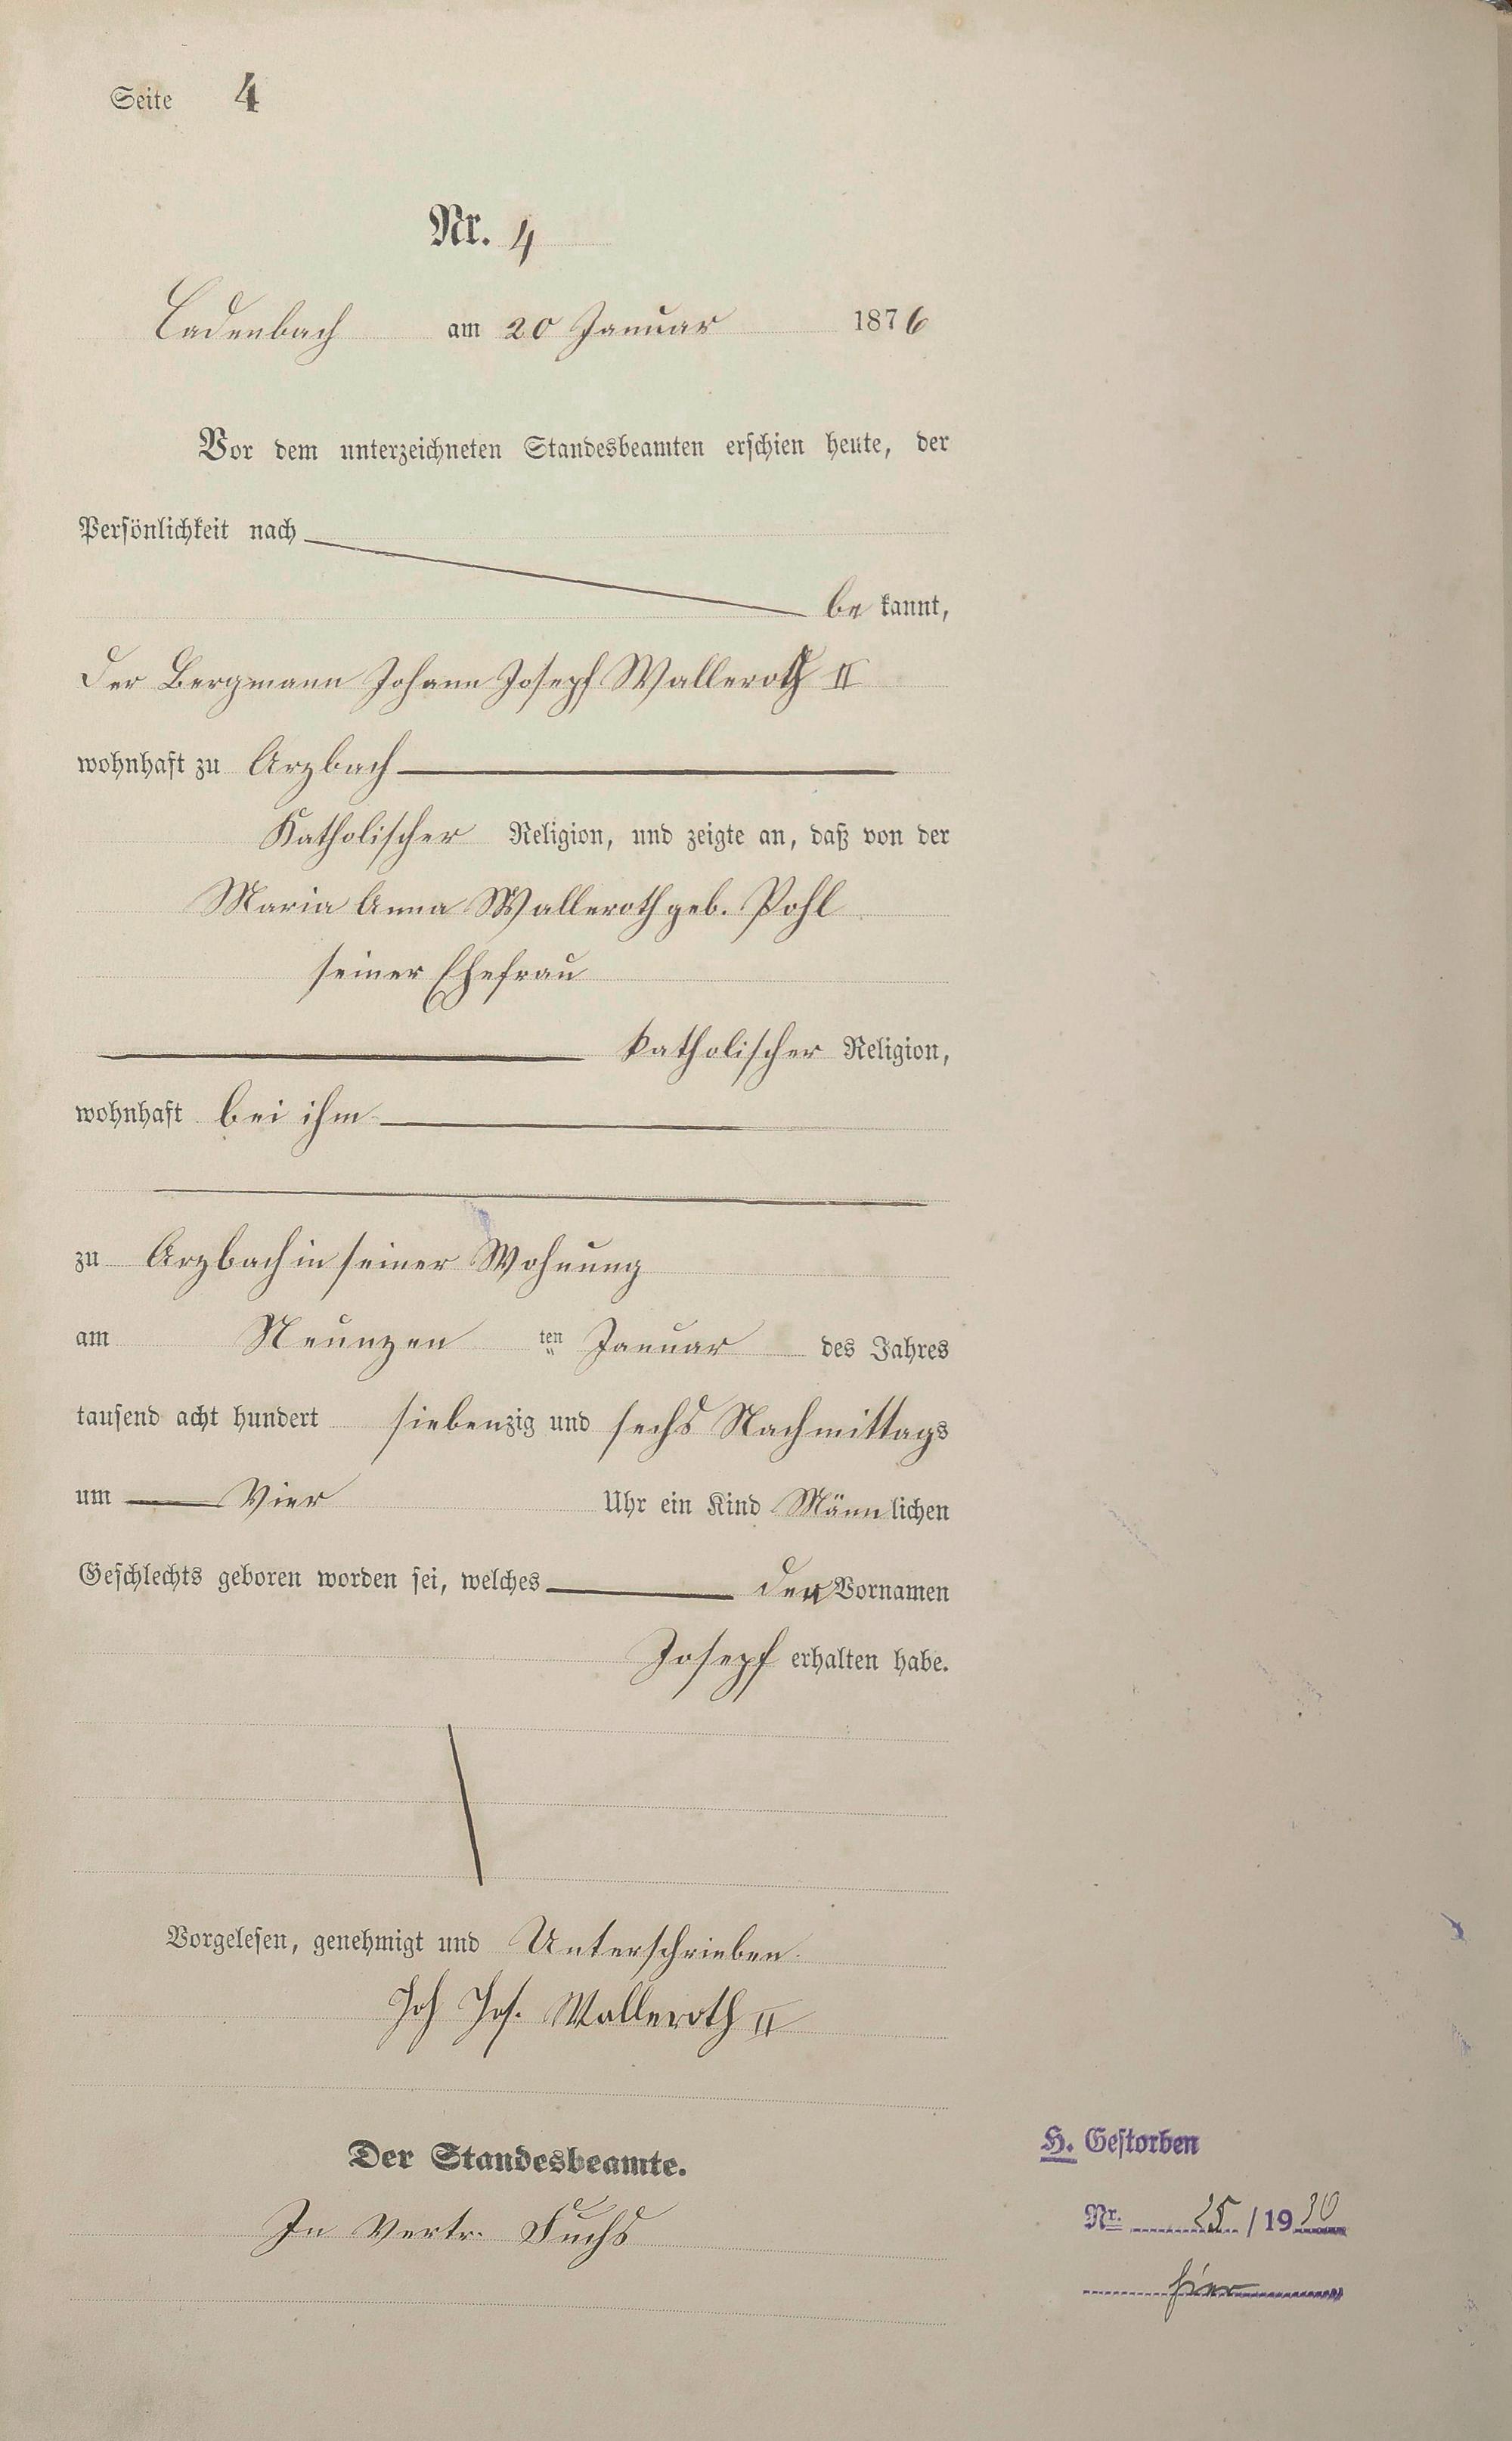 Seite 4
Nr. 4
Cadenbach am 20 Januar 1876
Vor dem unterzeichneten Standesbeamten erschien heute, der
Persönlichkeit nach
be kannt,
der Bergmann Johann Joseph Walleroth II
wohnhaft zu Arzbach
Katholischer Religion, und zeigte an, daß von der
Maria Anna Walleroth geb. Pohl
seiner Ehefrau
katholischer Religion,
wohnhaft bei ihm
zu Arzbach in seiner Wohnung
am Neunzen ten Januar des Jahres
tausend acht hundert siebenzig und sechs Nachmittags
um Vier Uhr ein Kind Männlichen
Geschlechts geboren worden sei, welches den Vornamen
Joseph erhalten habe.
Vorgelesen, genehmigt und Unterschrieben.
Joh Jos. Walleroth II
Der Standesbeamte.
In Vertr. Fuchs
H. Gestorben
Nr. 25 / 1930
hier